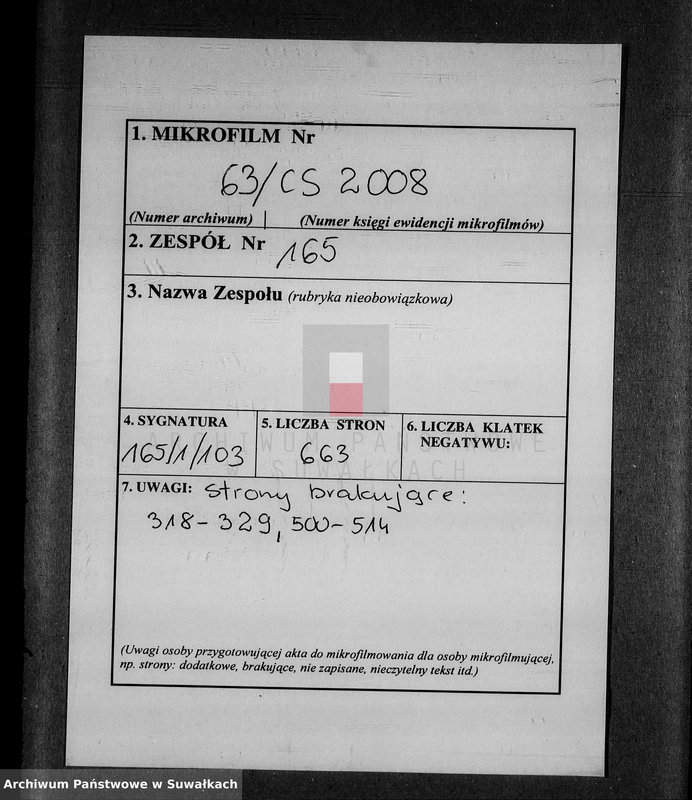 1. MIKROFILM Nr
63/CS 2008
(Numer archiwum) | (Numer księgi ewidencji mikrofilmów)
2. ZESPÓŁ Nr 165
3. Nazwa Zespołu (rubryka nieobowiązkowa)
4. SYGNATURA
165/1/103
5. LICZBA STRON
663
6. LICZBA KLATEK
NEGATYWU:
ARCHIWUM PAŃSTWOWE
W SUWAŁKACH
7. UWAGI: strony brakujące:
318-329, 500-514
(Uwagi osoby przygotowującej akta do mikrofilmowania dla osoby mikrofilmującej,
np. strony: dodatkowe, brakujące, nie zapisane, nieczytelny tekst itd.)
Archiwum Państwowe w Suwałkach